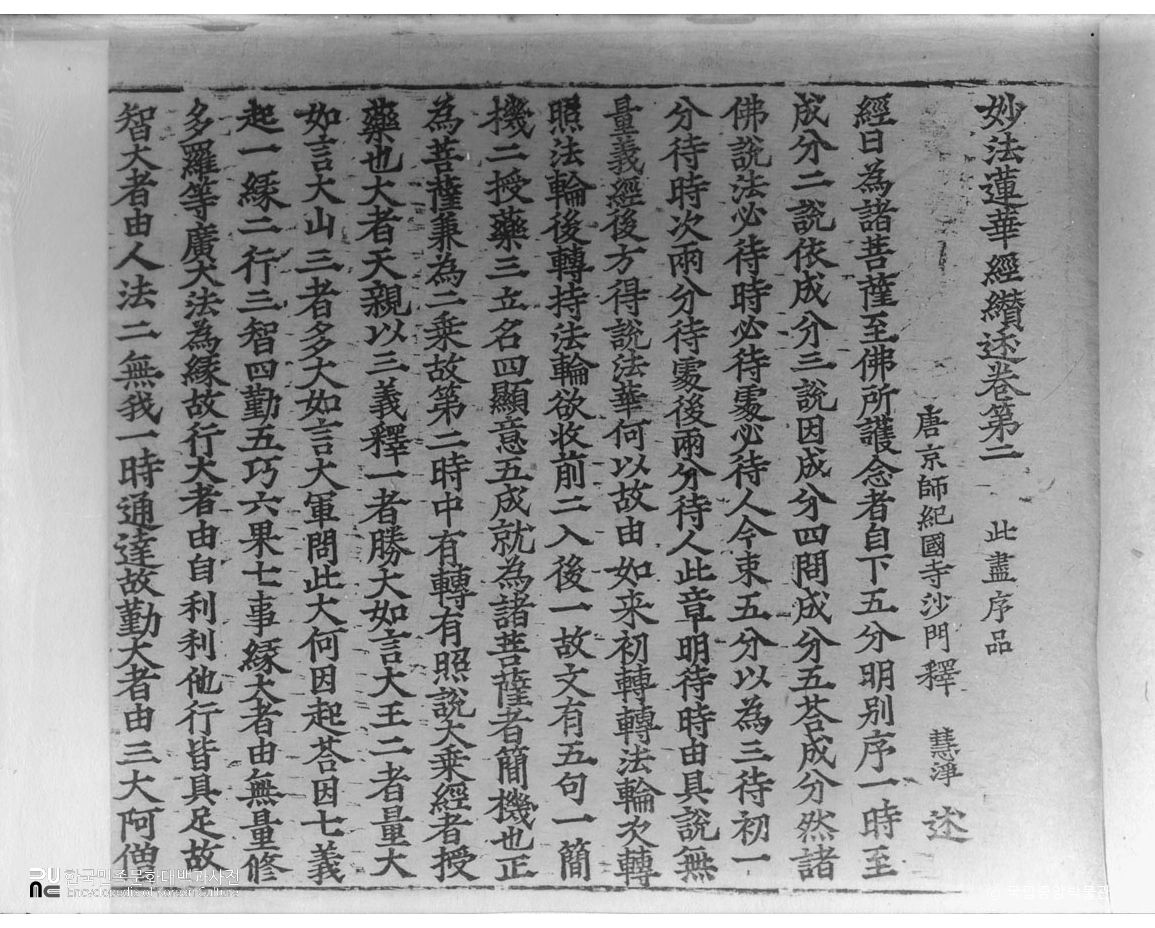 妙法蓮華經纘述卷第二 此盡序品
唐京師紀國寺沙門釋 慧淨 述
經曰為諸菩薩至佛所護念者自下五分明別序一時至
成分二說依成分三說因成分四問成分五荅成分然諸
佛說法必待時必待處必待人今束五分以為三待初一
分待時次兩分待處後兩分待人此章明待時由具說無
量義經後方得說法華何以故由如来初轉轉法輪次轉
照法輪後轉持法輪欲收前二入後一故文有五句一簡
機二授藥三立名四顯意五成就為諸菩薩者簡機也正
為菩薩兼為二乘故第二時中有轉有照說大乘經者授
藥也大者天親以三義釋一者勝大如言大王二者量大
如言大山三者多大如言大軍問此大何因起荅因七義
起一緣二行三智四勤五巧六果七事緣大者由無量修
多羅等廣大法為緣故行大者由自利利他行皆具足故
智大者由人法二無我一時通達故勤大者由三大阿僧
한국민족문화대백과사전
Encyclopedia of Korean Culture
국립중앙박물관